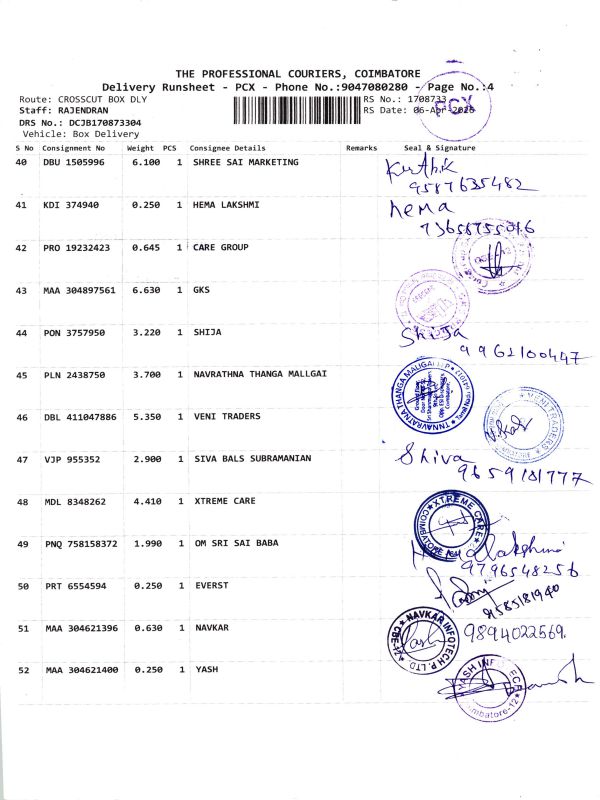 THE PROFESSIONAL COURIERS, COIMBATORE
Delivery Runsheet - PCX - Phone No.:9047080280 - Page No.:4
Route: CROSSCUT BOX DLY RS No.: 1708733
Staff: RAJENDRAN RS Date: 06-Apr
PCX
DRS No.: DCJB170873304
Vehicle: Box Delivery
S No Consignment No Weight PCS Consignee Details Remarks Seal & Signature
40 DBU 1505996 6.100 1 SHREE SAI MARKETING
9587635482
41 KDI 374940 0.250 1 HEMA LAKSHMI hema
42 PRO 19232423 0.645 1 CARE GROUP
43 MAA 304897561 6.630 1 GKS
44 PON 3757950 3.220 1 SHIJA Shija
9962100447
45 PLN 2438750 3.700 1 NAVRATHNA THANGA MALLGAI
46 DBL 411047886 5.350 1 VENI TRADERS VENI TRADERS
47 VJP 955352 2.900 1 SIVA BALS SUBRAMANIAN Shiva
9659181777
48 MDL 8348262 4.410 1 XTREME CARE XTREME CARE
COIMBATORE
49 PNQ 758158372 1.990 1 OM SRI SAI BABA
9796548256
50 PRT 6554594 0.250 1 EVERST
9585181940
51 MAA 304621396 0.630 1 NAVKAR NAVKAR INFOTECH P. LTD. CBE-12 9894022569
52 MAA 304621400 0.250 1 YASH YASH INFOTECH
Coimbatore-12